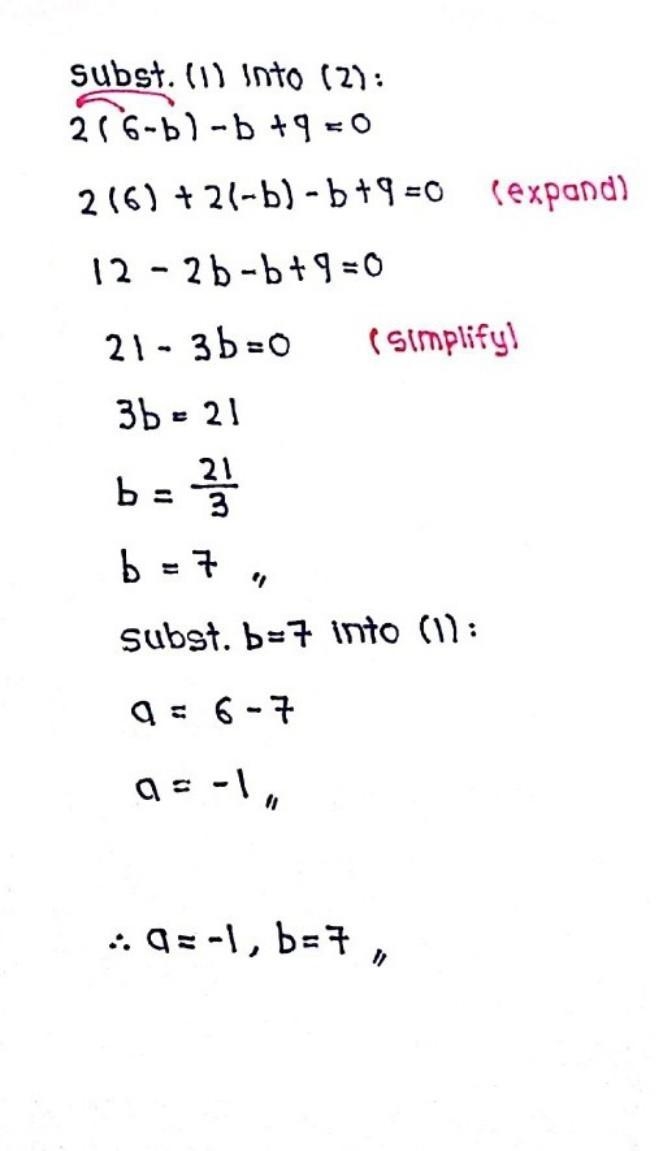 subst. (1) into (2):
2(6-b) - b + 9 = 0
2(6) + 2(-b) - b + 9 = 0 (expand)
12 - 2b - b + 9 = 0
21 - 3b = 0 (simplify)
3b = 21
b = 21/3
b = 7 〃
subst. b=7 into (1):
a = 6 - 7
a = -1 〃
∴ a = -1, b = 7 〃